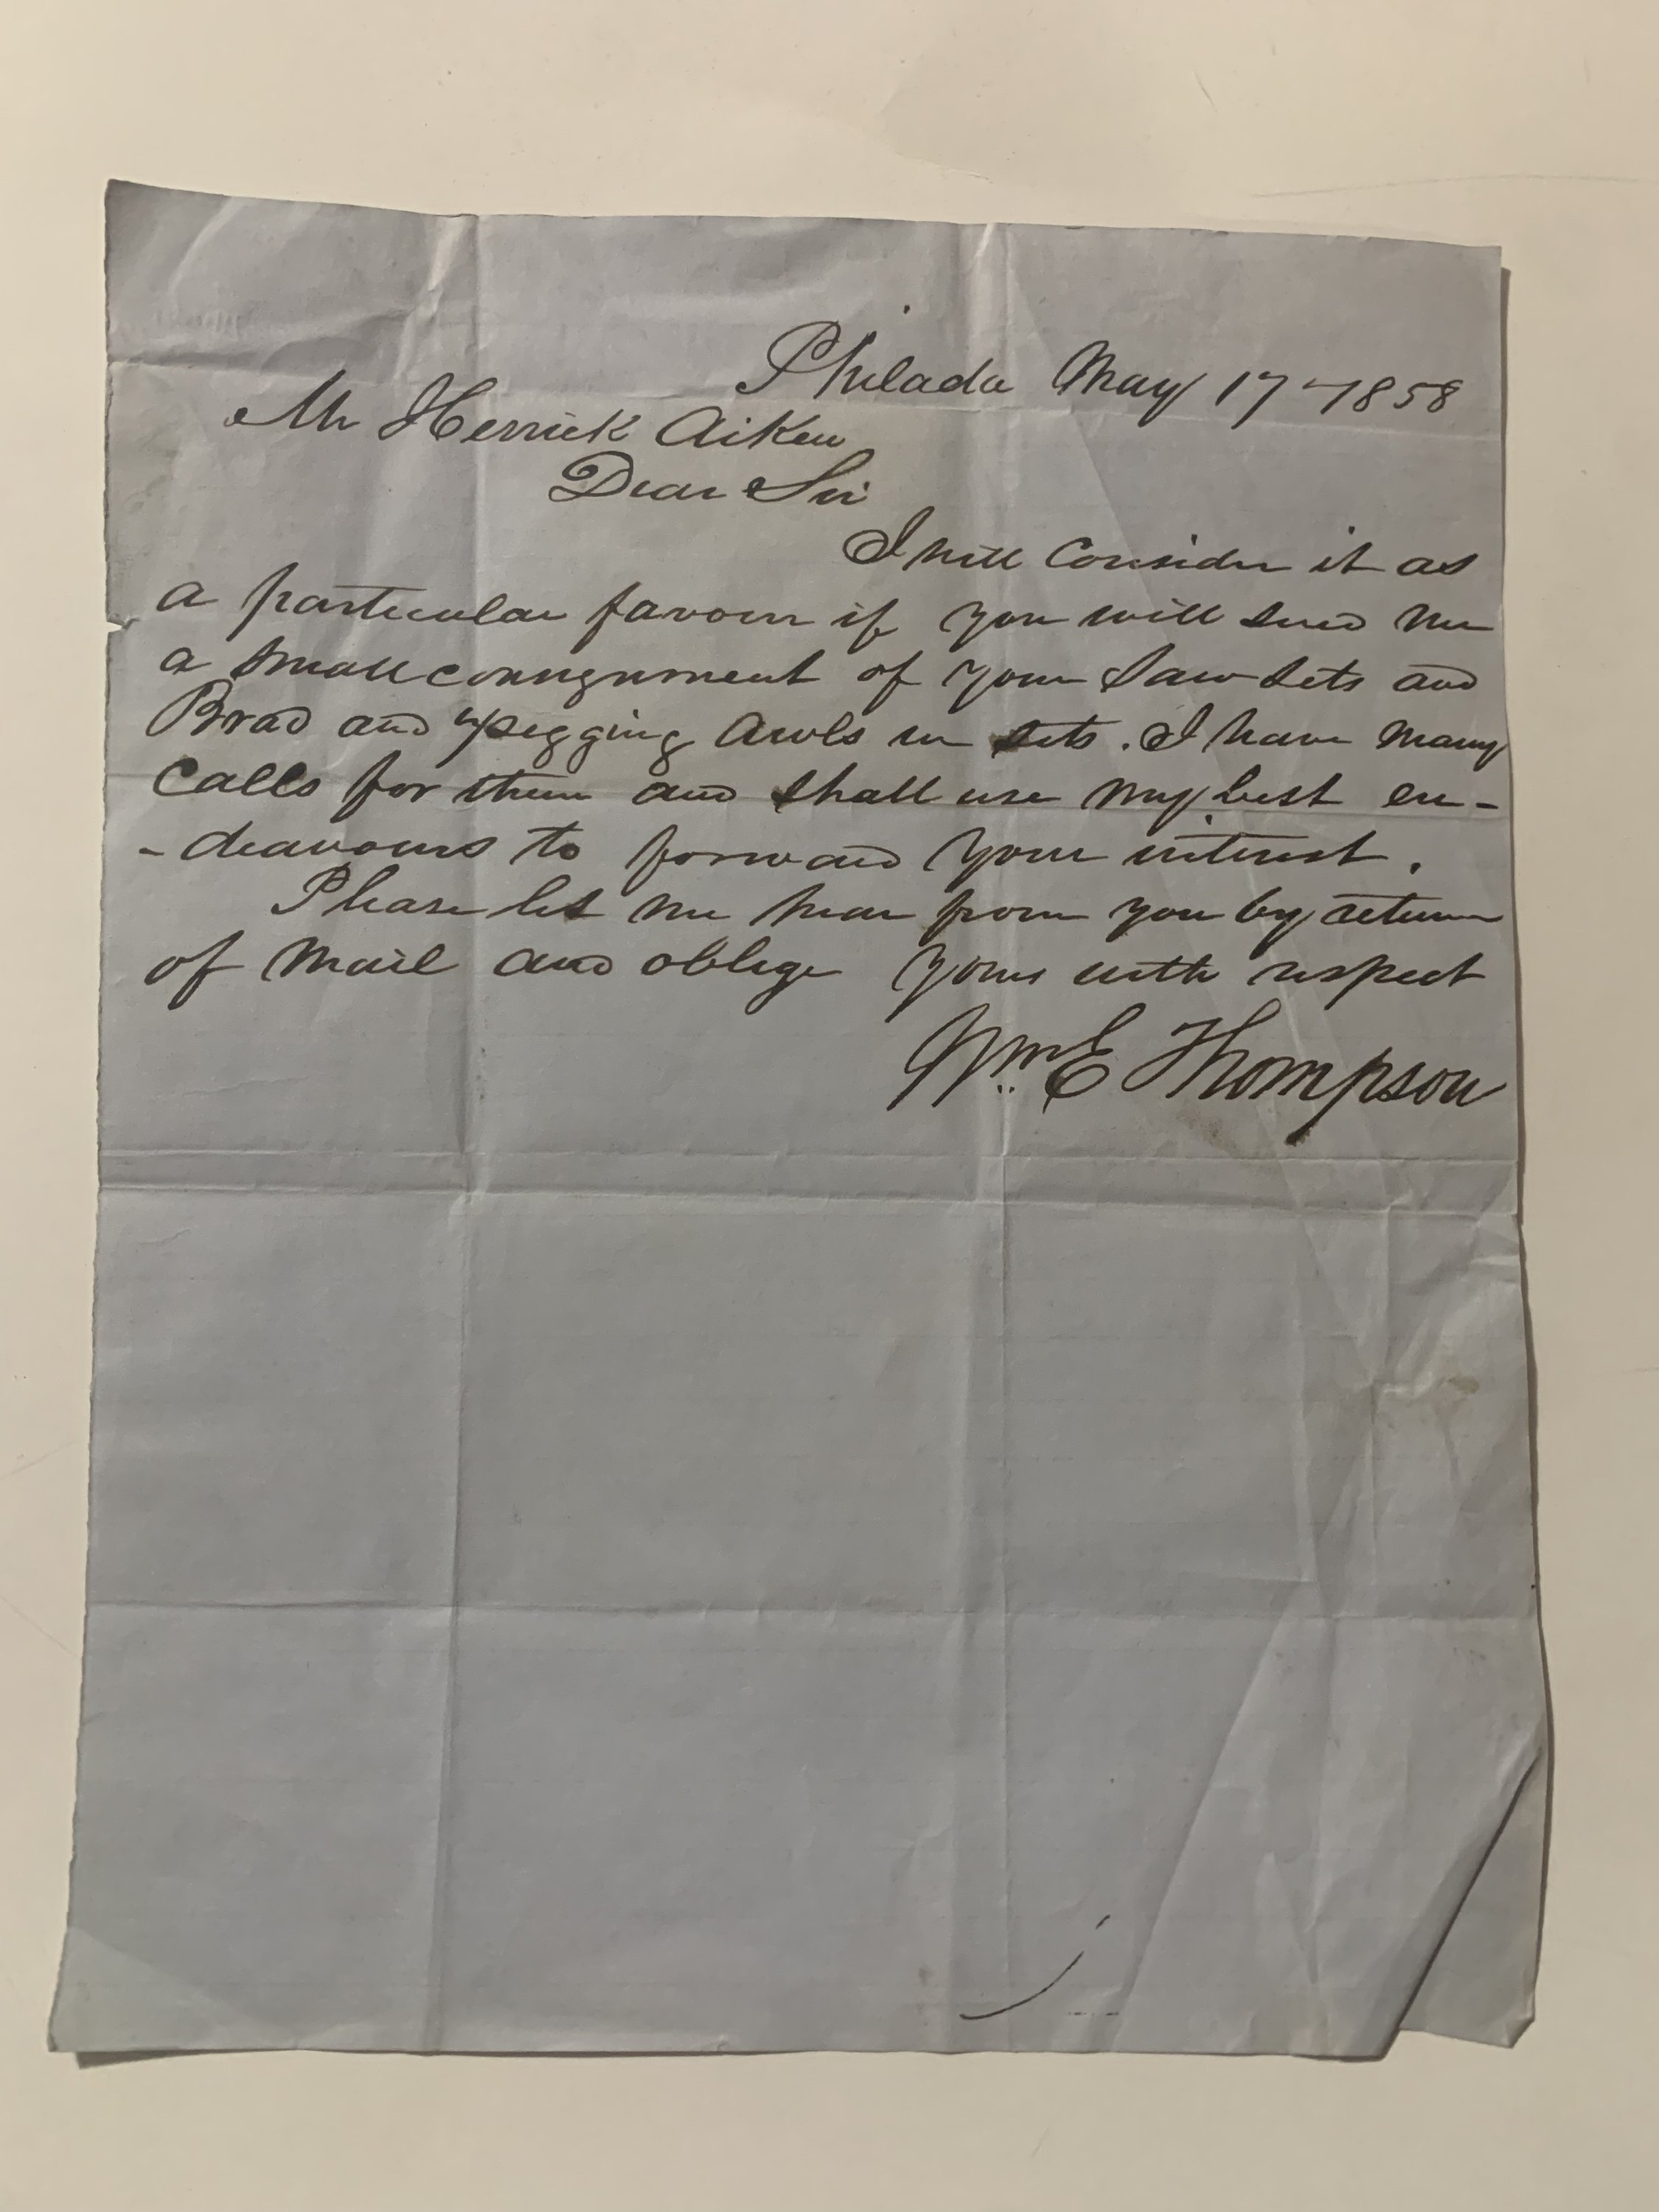 Philada May 17 - 1858
Mr Herrick Aiken
Dear Sir
I will consider it as
a particular favour if you will send me
a small consignment of your Saw Sets and
Brad and pegging Awls in sets. I have many
Calls for them and shall use my best en-
-deavours to forward your interest.
Please let me hear from you by return
of Mail and oblige yours with respect
Wm E Thompson